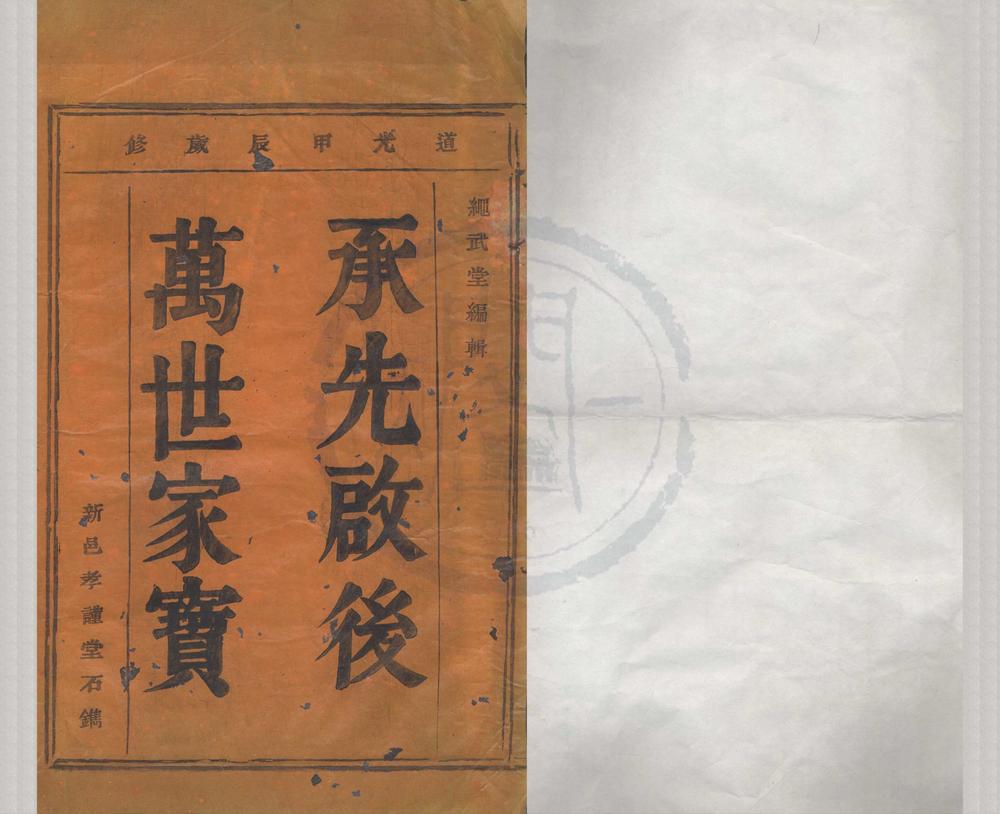 道光甲辰歲修
繩武堂編輯
承先啟後
萬世家寶
新邑孝謹堂石鐫